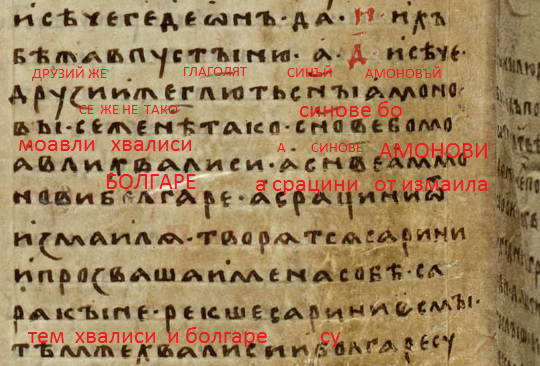 исѣчегедеѡнъ·да·н·ихъ
бѣжавпустыни·а·д·исѣче·
ДРУЗИЙ ЖЕ ГЛАГОЛЯТ СИНЪЙ АМОНОВЪЙ
друзиижеглютьсныамоно
СЕ ЖЕ НЕ ТАКО синове бо
вы·сеженѣтако·сновебомо
моавли хвалиси А СИНОВЕ АМОНОВИ
авлихвалиси·аснвеаммо
БОЛГАРЕ а срацини от измаила
новиболгаре·асрациниѿ
измаилѧ·творѧтсѧсарини
ипрозвашаименасобѣ·са
ракыне·рекшесариниесмы·
тем хвалиси и болгаре су
тѣмжехвалисииболгаресу